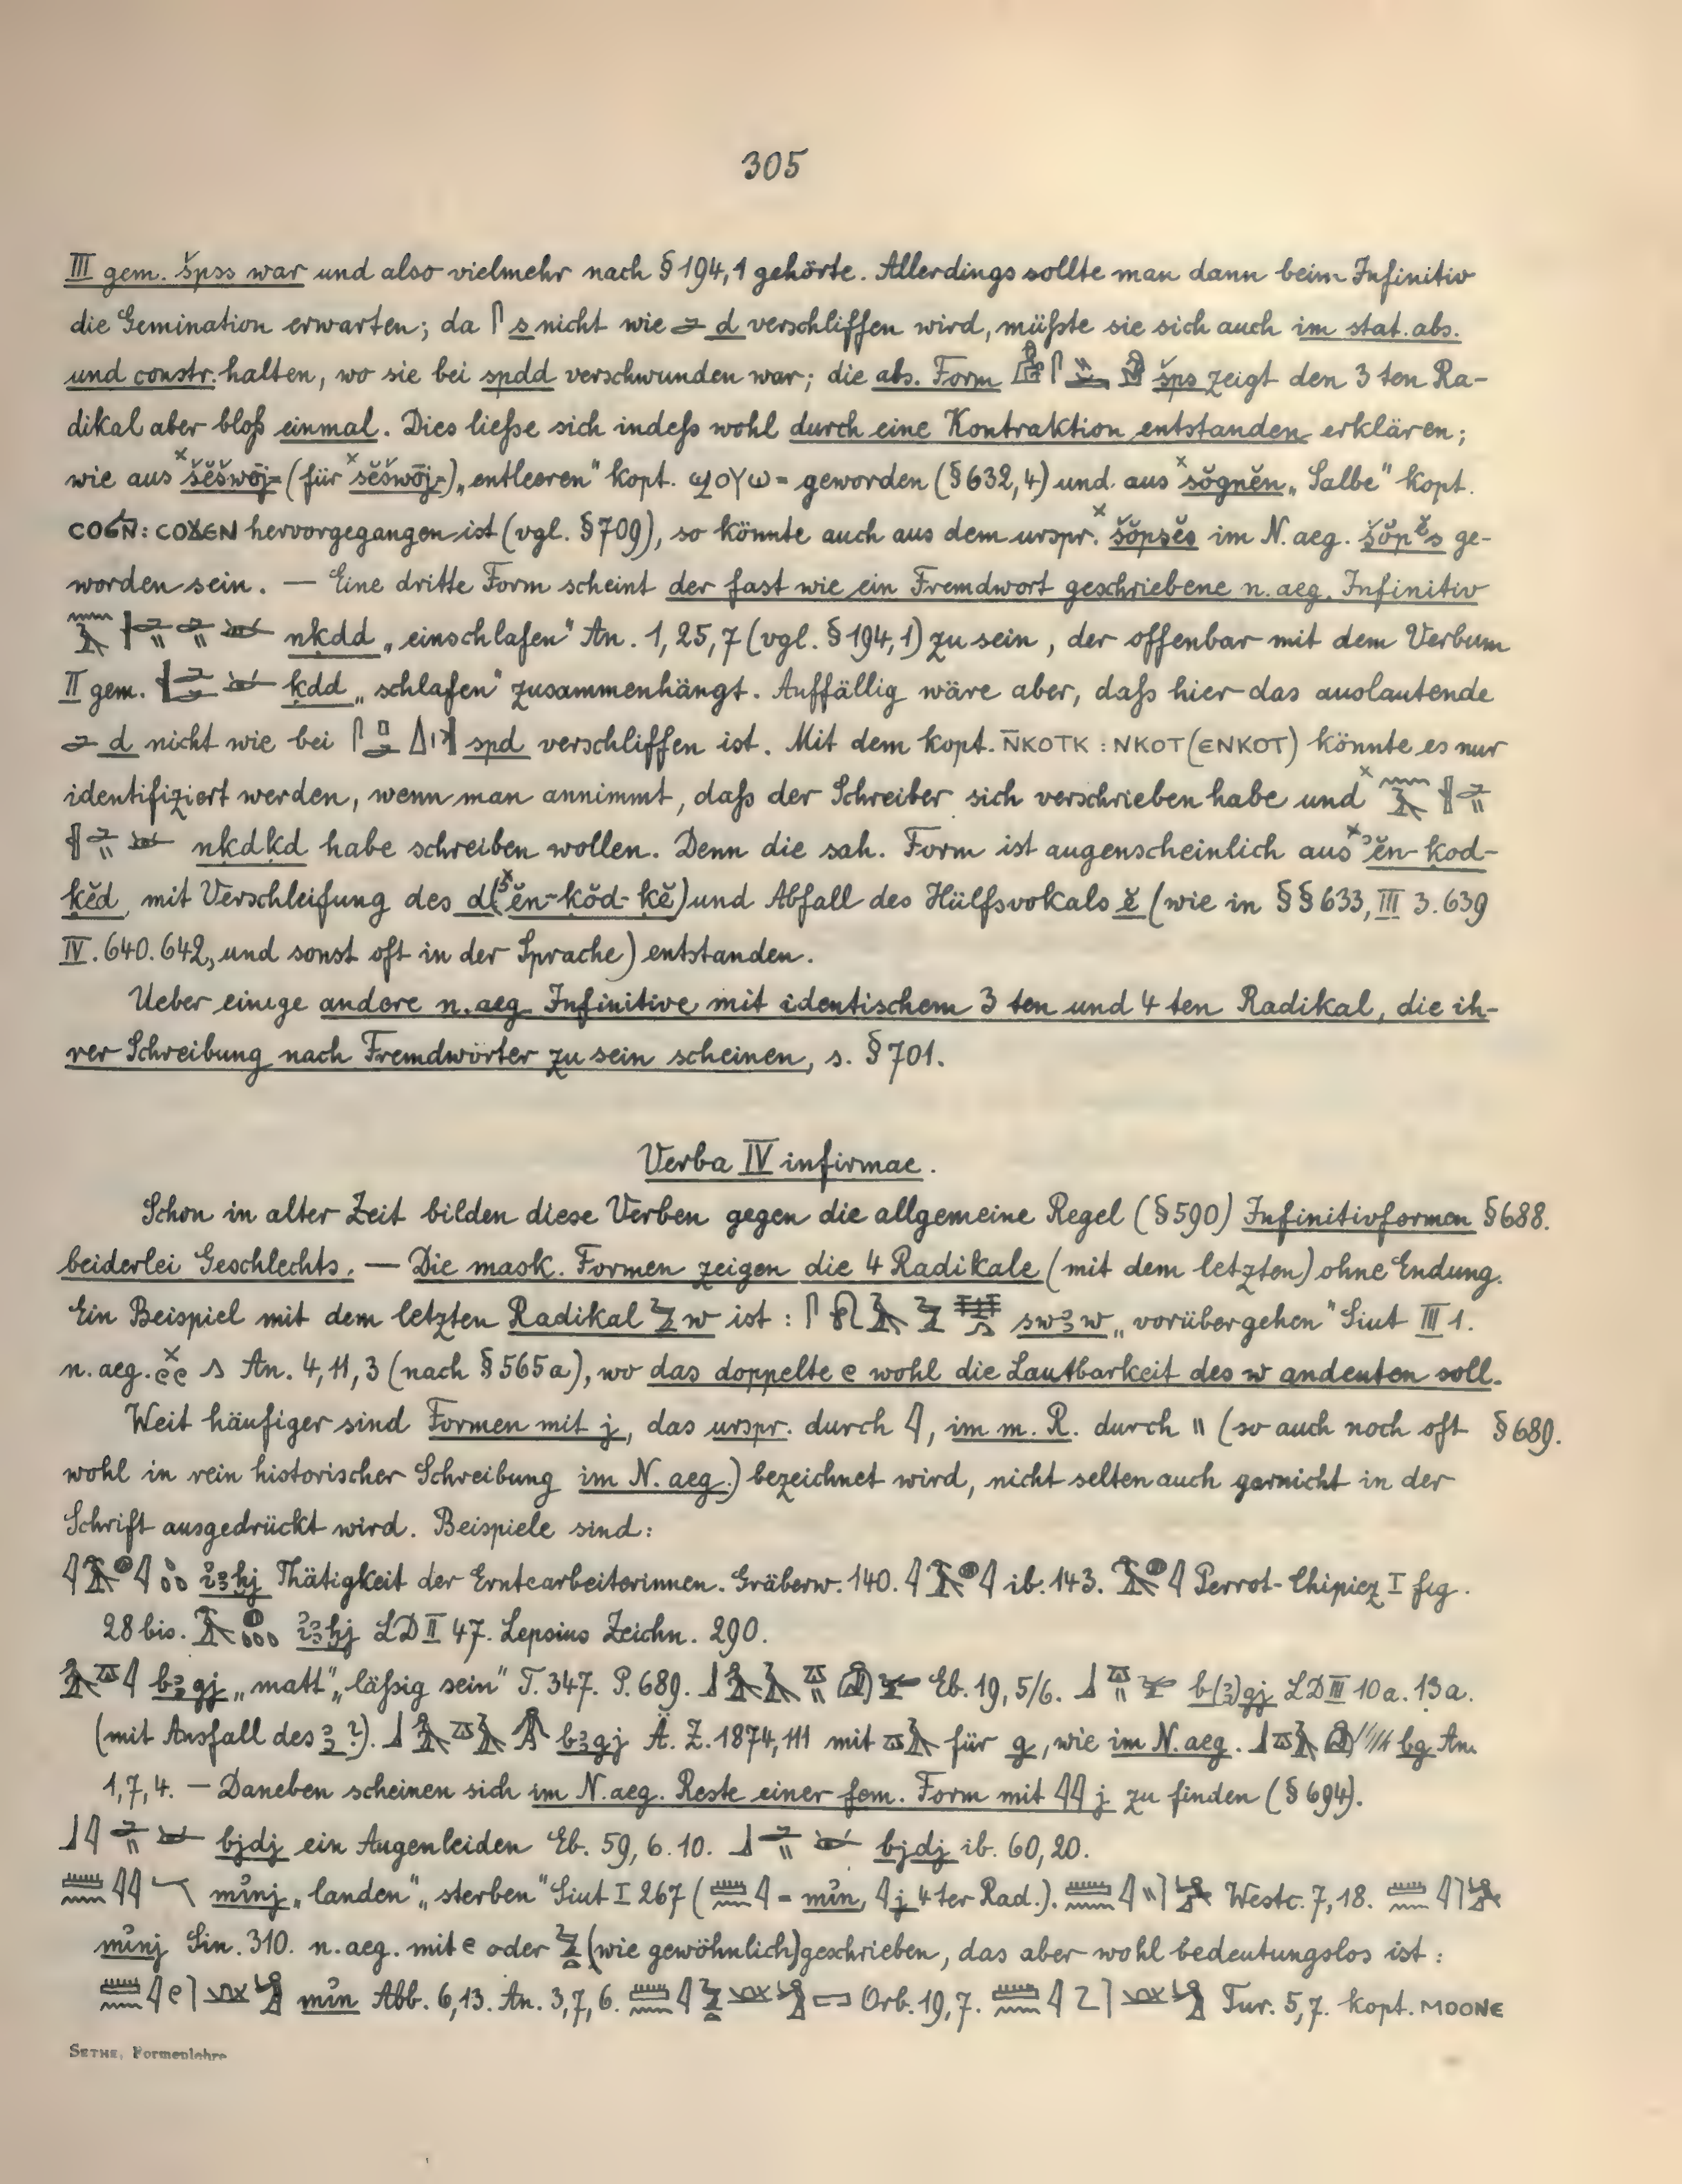 305
III gem. špss war und also vielmehr nach § 194,1 gehörte. Allerdings sollte man dann beim Infinitiv
die Gemination erwarten; da 𓋴 s nicht wie 𓂧 d verschliffen wird, müßte sie sich auch im stat. abs.
und constr. halten, wo sie bei spdd verschwunden war; die abs. Form šps zeigt den 3 ten Ra-
dikal aber bloß einmal. Dies ließe sich indeß wohl durch eine Kontraktion entstanden erklären;
wie aus ˣšĕšwōj= (für ˣsĕšwōj=) „entleeren" kopt. ϣⲟⲩⲱ= geworden (§ 632,4) und aus ˣsŏgnĕn „Salbe" kopt.
ⲥⲟϭⲛ̄: ⲥⲟϫⲉⲛ hervorgegangen ist (vgl. § 709), so könnte auch aus dem urspr. ˣšŏpsĕs im N. aeg. šŏpĕs ge-
worden sein. — Eine dritte Form scheint der fast wie ein Fremdwort geschriebene n. aeg. Infinitiv
nḳdd „einschlafen" An. 1, 25, 7 (vgl. § 194,1) zu sein, der offenbar mit dem Verbum
II gem. ḳdd „schlafen" zusammenhängt. Auffällig wäre aber, daß hier das auslautende
𓂧 d nicht wie bei spd verschliffen ist. Mit dem kopt. ⲛ̄ⲕⲟⲧⲕ : ⲛⲕⲟⲧ (ⲉⲛⲕⲟⲧ) könnte es nur
identifiziert werden, wenn man annimmt, daß der Schreiber sich verschrieben habe und ˣ
nḳdḳd habe schreiben wollen. Denn die sah. Form ist augenscheinlich aus ˣʾĕn-ḳod-
ḳĕd, mit Verschleifung des d (ˣʾĕn-ḳŏd-ḳĕ) und Abfall des Hülfsvokals ĕ (wie in §§ 633, III 3. 639
IV. 640. 642, und sonst oft in der Sprache) entstanden.
Ueber einige andere n. aeg. Infinitive mit identischem 3 ten und 4 ten Radikal, die ih-
rer Schreibung nach Fremdwörter zu sein scheinen, s. § 701.
Verba IV infirmae.
Schon in alter Zeit bilden diese Verben gegen die allgemeine Regel (§ 590) Infinitivformen § 688.
beiderlei Geschlechts. — Die mask. Formen zeigen die 4 Radikale (mit dem letzten) ohne Endung.
Ein Beispiel mit dem letzten Radikal 𓅱 w ist: swꜣw „vorübergehen" Siut III 1.
n. aeg. An. 4, 11, 3 (nach § 565a), wo das doppelte e wohl die Lautbarkeit des w andeuten soll.
Weit häufiger sind Formen mit j, das urspr. durch 𓇋, im m. R. durch \\ (so auch noch oft § 689.
wohl in rein historischer Schreibung im N. aeg.) bezeichnet wird, nicht selten auch garnicht in der
Schrift ausgedrückt wird. Beispiele sind:
ỉꜣḫj Thätigkeit der Erntearbeiterinnen. Gräberw. 140. ib. 143. Perrot-Chipiez I fig.
28 bis. ỉꜣḫj LD II 47. Lepsius Zeichn. 290.
bꜣgj „matt", „läßig sein" T. 347. P. 689. Eb. 19, 5/6. b(ꜣ)gj LD III 10a. 13a.
(mit Ausfall des ꜣ?). bꜣgj Ä. Z. 1874, 111 mit für g, wie im N. aeg. bg An.
1, 7, 4. — Daneben scheinen sich im N. aeg. Reste einer fem. Form mit 𓇋𓇋 j zu finden (§ 694).
bjdj ein Augenleiden Eb. 59, 6. 10. bjdj ib. 60, 20.
mỉnj „landen", „sterben" Siut I 267 ( = mỉn, 𓇋 j 4 ter Rad.). Westc. 7, 18.
mỉnj Sin. 310. n. aeg. mit e oder (wie gewöhnlich) geschrieben, das aber wohl bedeutungslos ist:
mỉn Abb. 6, 13. An. 3, 7, 6. Orb. 19, 7. Tur. 5, 7. kopt. ⲙⲟⲟⲛⲉ
SETHE, Formenlehre